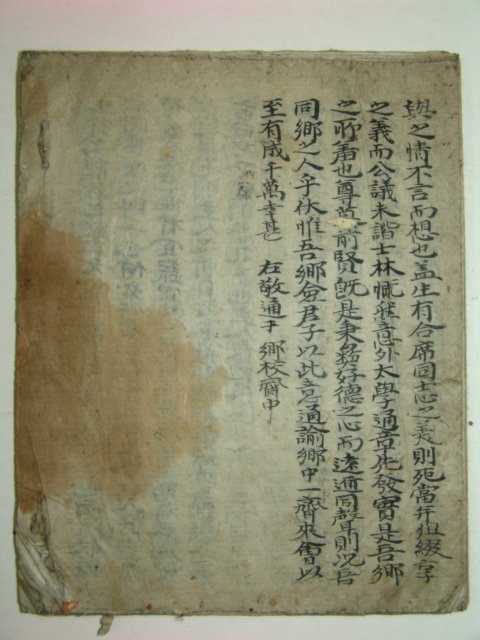 與之情不言而想也盖生有合席同志之美則死當幷俎綴享
之義而公議未諧士林慨然意外太學通章先發實是吾鄉
之所羞也尊慕前賢旣是秉彛好德之心而遠邇同聲則況吾
同鄉之人乎伏惟吾鄉僉君子以此意通諭鄉中一齊來會以
至有成千萬幸甚 右敬通于 鄉校齋中